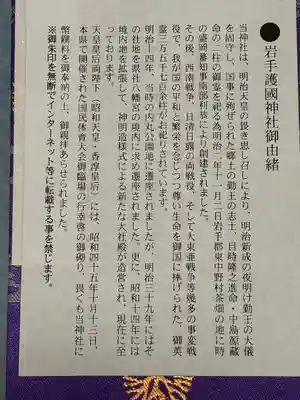 ●岩手護國神社御由緒
当神社は、明治天皇の畏き思し召しにより、明治新成の夜明け勤王の大儀
を固守し、国事に殉ぜられた郷土の勤王の志士、目時隆之進命・中島源蔵
命の二柱の御霊を祀る為明治二年十一月二日岩手郡東中野村茶畑の地に時
の盛岡藩知事南部利恭により創建されました。
その後、西南戦争、日清日露の両戦役、そして大東亜戦争等幾多の事変戦
役で、我が国の平和と繁栄を念じつつ尊い生命を御国に捧げられた、御英
霊三万五千七百余柱がお祀りされています。
明治十四年、当時の内丸公園地に遷座されましたが、明治三十九年にはそ
の社地を県社八幡宮の境内に求め遷座されました。更に、昭和十四年には
境内地を拡張して、神明造様式による新たな大社殿が造営され、現在に至
っております。
天皇皇后両陛下（昭和天皇・香淳皇后）には、昭和四十五年十月十三日、
本県で開催された国民体育大会御臨場の行幸啓の御砌り、畏くも当神社に
幣饌料を御奉納の上、御親拝あらせられました。
※御朱印を無断でインターネット等に転載する事を禁じます。